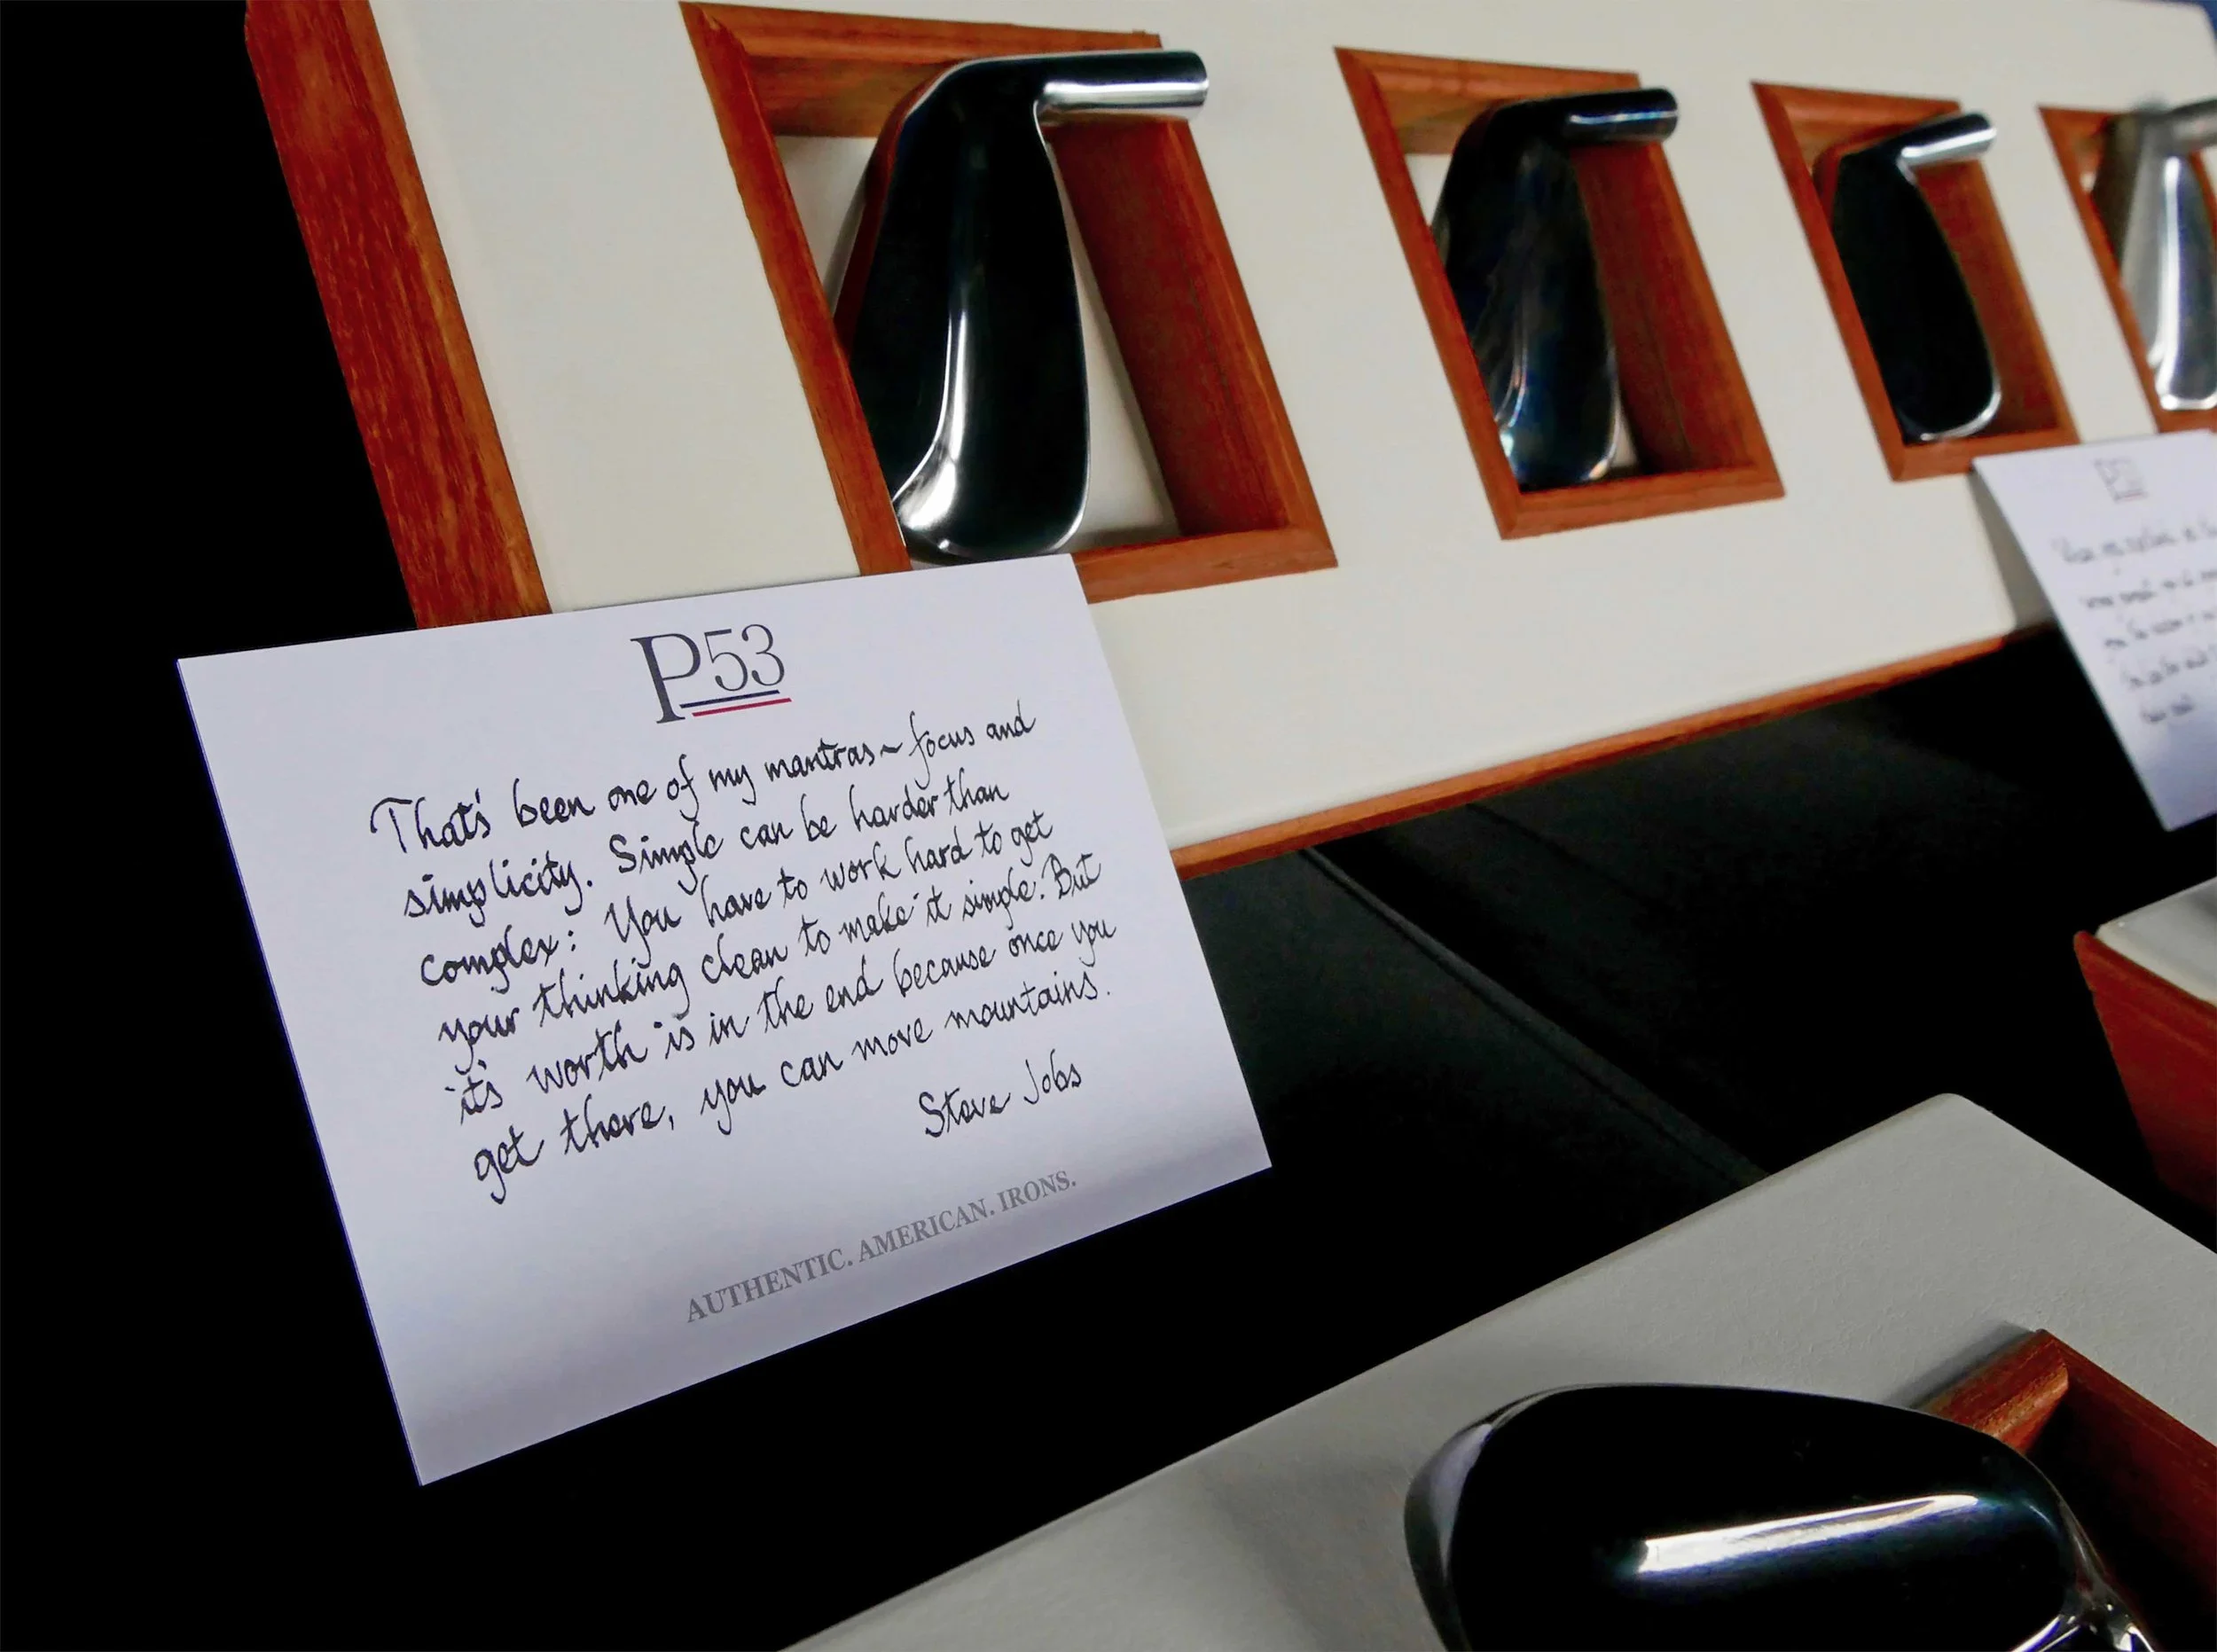 P53
That's been one of my mantras ~ focus and
simplicity. Simple can be harder than
complex: You have to work hard to get
your thinking clean to make it simple. But
it's worth is in the end because once you
get there, you can move mountains.
Steve Jobs
AUTHENTIC. AMERICAN. IRONS.